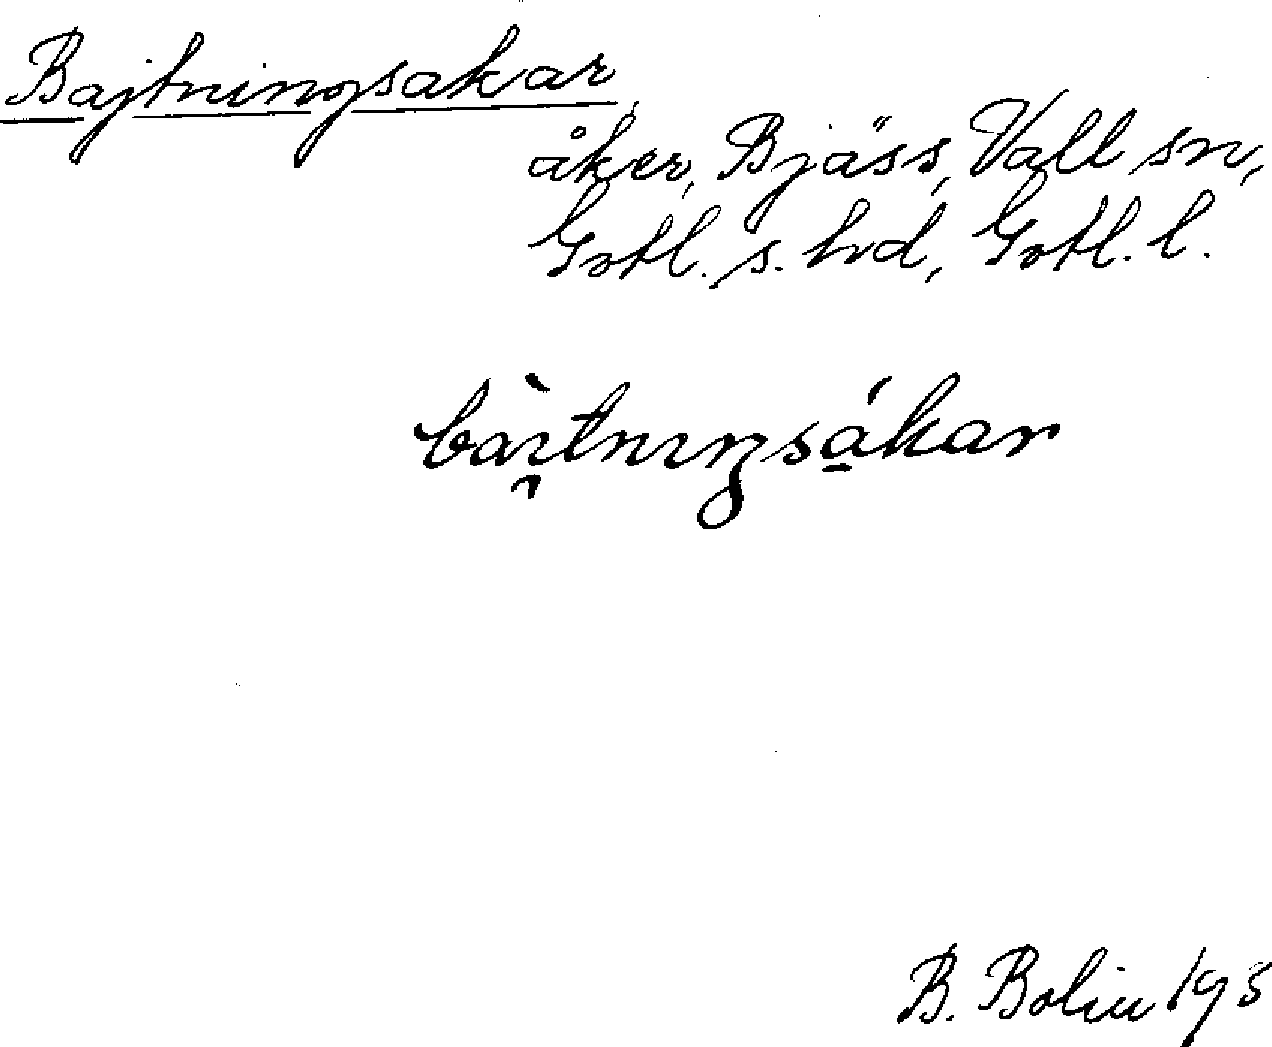 Bajtningsakar,
åker, Bjäss, Vall sn,
Gotl. s. hd, Gotl. l.
bàı̯tnıŋsá̱kar
B. Bolin 193